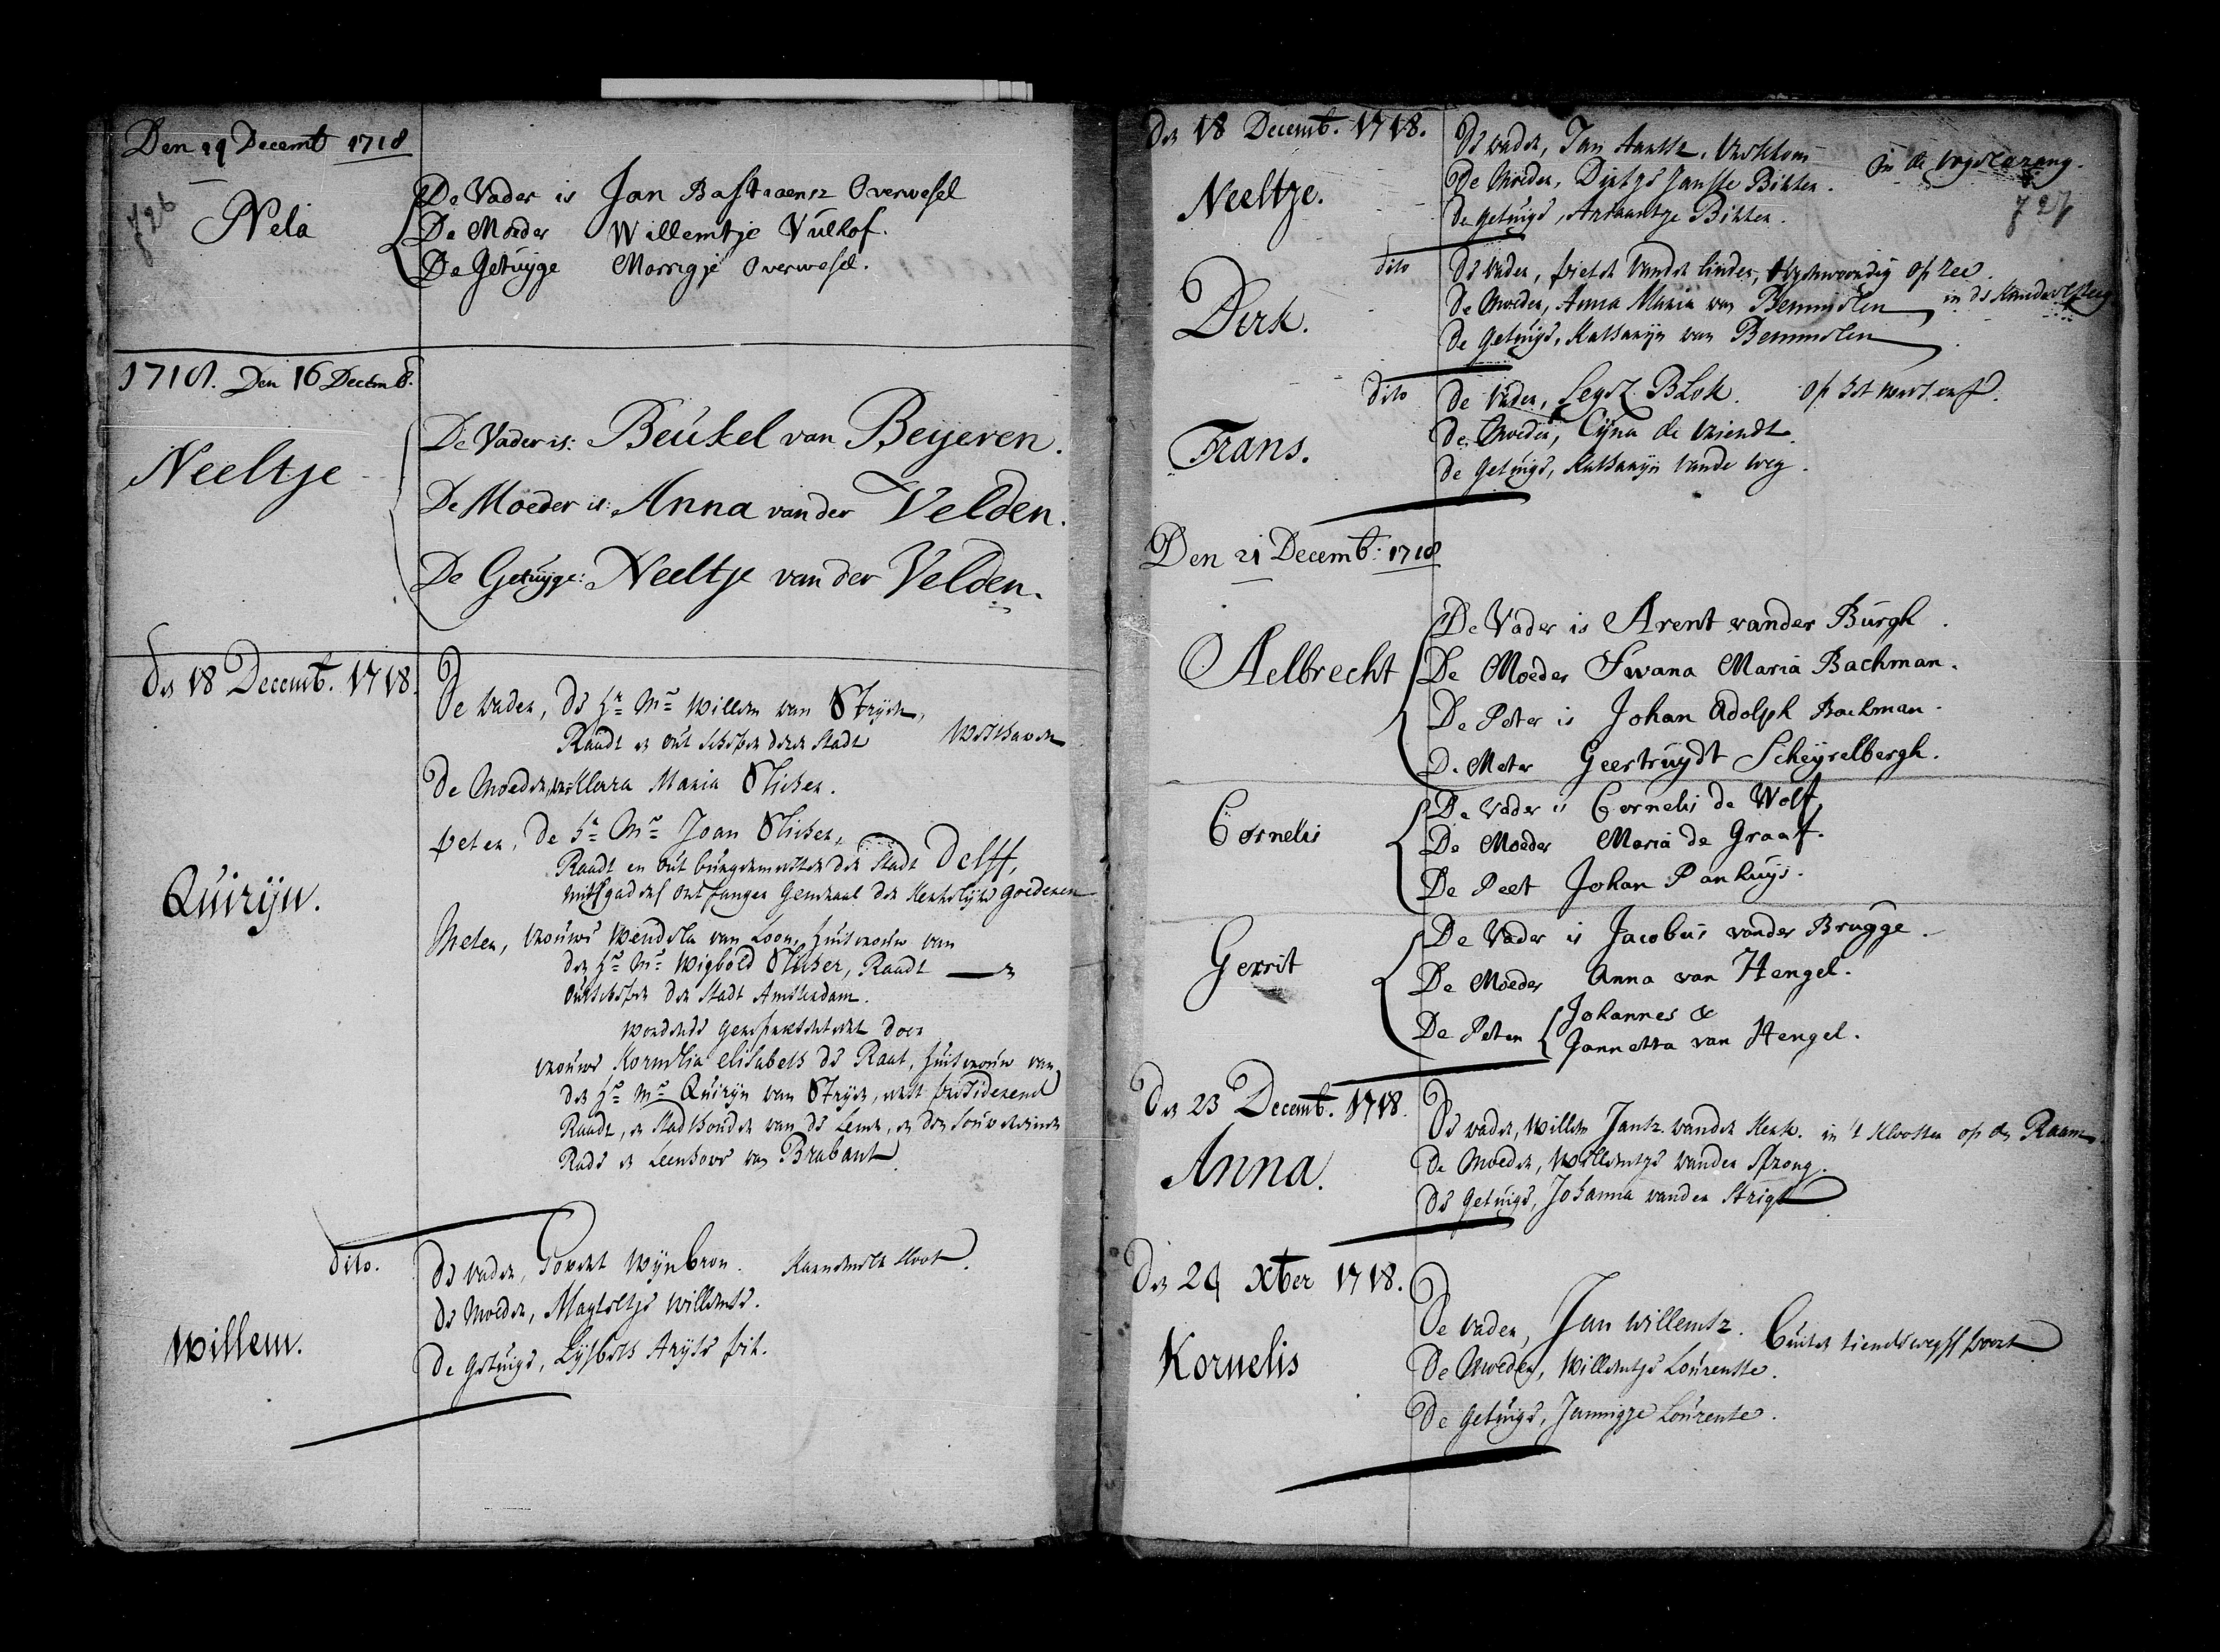 Den 14 Decemb 1718
726
Nela
De Vader is Jan Bastiaensz Overwesel
De Moeder Willemtje Vulhof.
De Getuyge Marrigje Overwesel.
1718. Den 16 Decemb.
Neeltje
De Vader is: Beukel van Beyeren.
De Moeder is: Anna van der Velden.
De Getuyge: Neeltje van der Velden.
den 18 Decemb. 1718.
Quirijn.
De vader, de Hr Mr Willem van Stryen,
Raadt en out schepen deser stadt Westhaven
De Moeder, Klara Maria Slicher.
peter, De Hr Mr Joan Slicher,
Raadt en out burgermeester der stadt Delff,
mitsgaders ontfanger Generaal der kerkelijke goederen
Meter, vrouwe Wendela van Loon, huisvrouw van
den Hr Mr Wigbold Slicher, Raadt en
outschepen der Stadt Amsterdam.
werdende gerepresenteert door
vrouwe Kornelia elisabeth de Raat, huisvrouw van
den Hr Mr Quirijn van Stryen, presiderend
Raadt, en Stadhouder van de Leenen, en den souvereinen
Rade en Leenhove van Brabant
dito.
Willem.
de vader, Govert Wijnbron. Karnemelk sloot.
de Moeder, Magteltje Willemse.
de Getuige, Lijsbeth Aryse
den 18 Decemb. 1718.
Neeltje.
De vader, Jan in de vogelezang.
De Moeder, Dirkje Janste Bikker.
de getuige, Ariaantje Bikker.
727
dito
Dirk.
De vader, pieter vander linden, tegenwoordig op zee.
de Moeder, Anna Maria van Bemmelen in de
de getuige, Katharijn van Bemmelen
dito
Frans.
de vader, Blok. op het
de Moeder, Cyna de vriendt.
de getuige, Katharijn vande weg.
Den 21 Decemb: 1718
Aelbrecht
De Vader is Arent vander Burgh.
De Moeder Swana Maria Bachman.
De Peter is Johan Adolph Bachman.
De Meter Geertruydt Scheyselbergh.
Cornelis
De Vader is Cornelis de Wolf,
De Moeder Maria de Graaf.
De Peet Johan Panhuys.
Gerrit
De Vader is Jacobus vander Brugge.
De Moeder Anna van Hengel.
De Peten Johannes &
Jannetta van Hengel.
den 23 Decemb. 1718.
Anna.
De vader, Willem Jantz. vander Kerk. in 't klooster op de Raam.
de Moeder, Willemtje vander sprong.
de getuige, Johanna vander Strigt
den 24 Xber 1718.
Kornelis
De vader, Jan Willemtz. buiten tiendewegss poort
De Moeder, Willemtje Lourenste.
De getuige, Jannigje Lourenste.